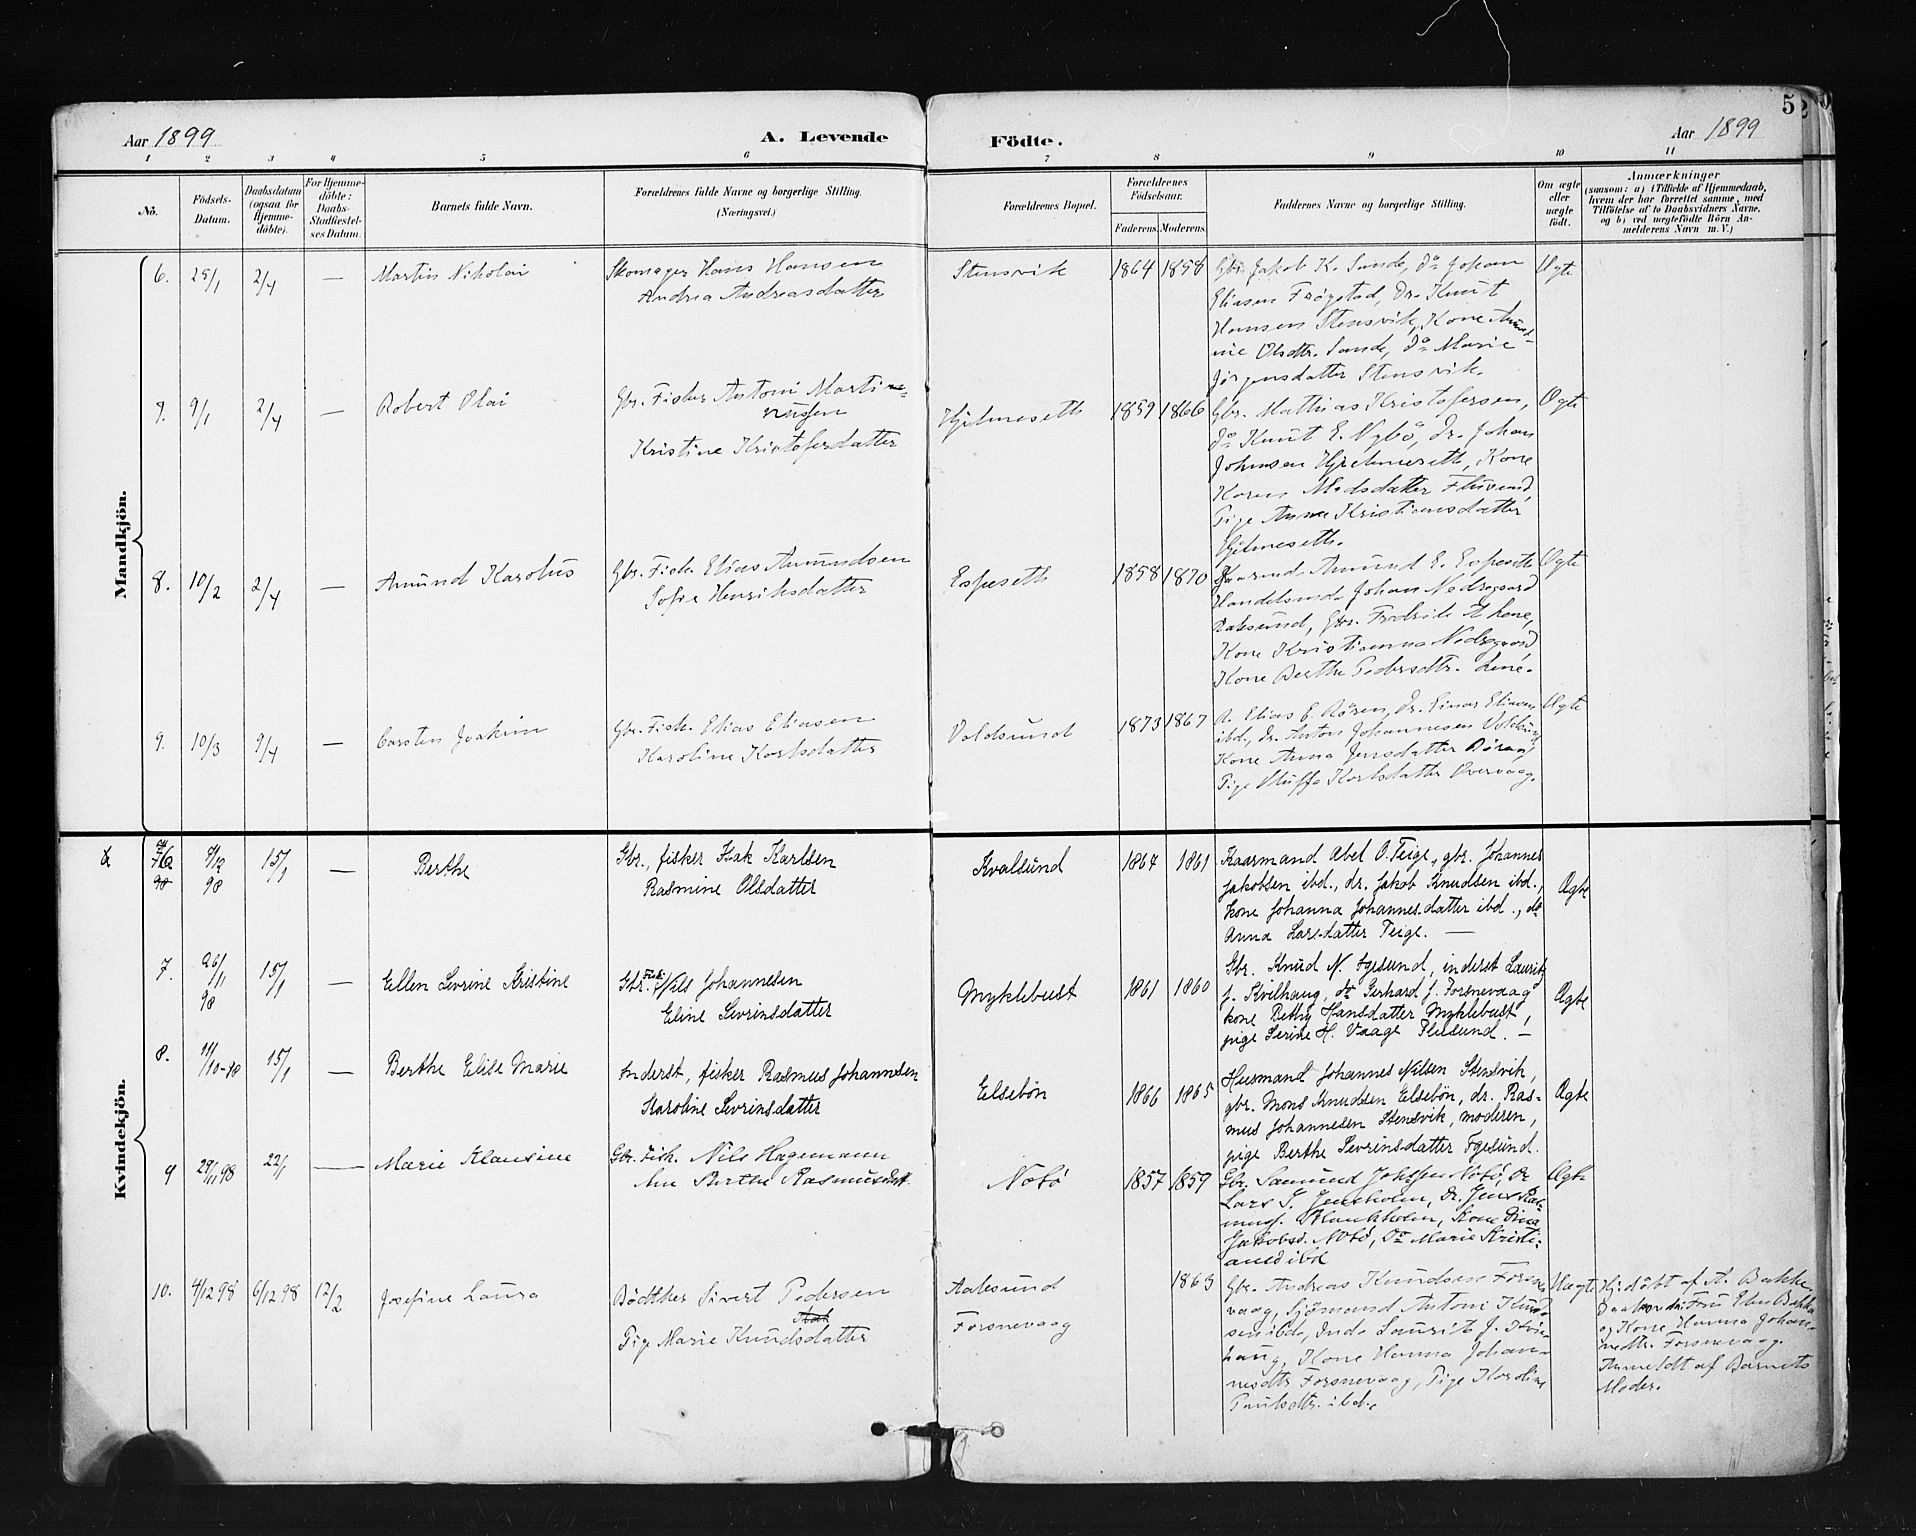 Aar 1899
A. Levende
Födte.
Aar 1899
52
1 2 3 4 5 6 7 8 9 10 11
Nô.
Födsels-
Datum.
Daabsdatum
(ogsaa for
Hjemme-
döbte).
For Hjemme-
döbte:
Daabs-
Stadfæstel-
ses Datum.
Barnets fulde Navn.
Forældrenes fulde Navne og borgerlige Stilling.
(Næringsvei.)
Forældrenes Bopæl.
Forældrenes
Födselsaar.
Faderens. Moderens.
Faddernes Navne og borgerlige Stilling.
Om ægte
eller
uægte
födt.
Anmærkninger
(saasom: a) i Tilfælde af Hjemmedaab,
hvem der har forrettet samme, med
Tilföielse af to Daabsvidners Navne,
og b) ved uægtefödte Börn An-
melderens Navn m. V.)
Mandkjön.
6. 25/1 2/4 — Martin Nikolai
Skomager Hans Hansen
Andrea Andreasdatter
Stensvik 1864 1858
Gbr. Jakob K. Sande, do Johan
Eliasen Frøystad, Dr. Knut
Hansen Stensvik, Kone
Olsdtr. Sande, do Marie
Jörgensdatter Stensvik.
Ægte
7. 9/1 2/4 — Robert Olai
Gbr. Fisker Antoni Martin
Kristine Kristofersdatter
Hjelmeseth 1859 1866
Gbr. Mathias Kristofersen,
do Knut E. Nybö, Dr. Johan
Johnsen Hjelmeseth, Kone
Karen Madsdatter
Pige Anne Kristiansdatter
Hjelmeseth.
Ægte
8. 10/2 2/4 — Amund Karolus
Gbr. Fisk. Elias Amundsen
Sofie Henriksdatter
Espeseth 1858 1870
Kaarmd. Amund E. Espeseth
Handelsmd. Johan Nedregaard
Gbr. Fredrik
Kone Kristianna Nedregaard
Kone Berthe Pedersdtr.
Ægte
9. 10/3 9/4 — Carsten Joakim
Gbr. Fisk. Elias Eliasen
Karoline Karlsdatter
Voldsund 1873 1867
Elias E. Rören, dr. Einar Eliasen
ibd., dr. Anton Johannesen Voldsund
Kone Anna Jensdatter
Pige Karlsdatter Overvaag.
Ægte
Kvindekjön.
6 9/12 98 15/1 — Berthe
Gbr., fisker Isak Karlsen
Rasmine Olsdatter
Kvalsund 1867 1861
Kaarmand Abel O. Teige, gbr. Johannes
Jakobsen ibd., dr. Jakob Knudsen ibd.,
kone Johanna Johannesdatter ibd., do
Anna Larsdatter Teige. —
Ægte
7. 26/11 98 15/1 — Ellen Sevrine Kristine
Gbr. Fisk. Nils Johannesen
Eline Sevrinsdatter
Myklebust 1861 1860
Gbr. Knud N. Igesund, inderst Laurits
J. Kvilhaug, do Gerhard J. Forsnevaag
kone Bethy Hansdatter Myklebust,
pige Serine H. Vaage Flusund. —
Ægte
8. 11/10-98 15/1 — Berthe Elise Marie
Inderst, fisker Rasmus Johannesen
Karoline Sevrinsdatter
Elsebøn 1866 1865
Husmand Johannes Nilsen Stensvik,
gbr. Mons Knudsen Elsebøn, dr. Ras-
mus Johannesen Stensvik, moderen,
pige Berthe Sevrinsdatter Igesund.
Ægte
9 29/11 98 22/1 — Marie Klausine
Gbr. Fisk. Nils Hagemann
Ane Berthe Rasmusdatt.
Notö 1857 1859
Gbr. Samund Notö, Dr
Lars Jensholm, Dr. Jens Ras-
muss. Flaukholm, Kone Dina
Jakobsd. Notö, Do Marie Kristi-
ansd ibd
Ægte
10. 4/12 98 6/12 98 12/2 Josefine Laura
Bödtker Sivert Pedersen
Pige Marie Knudsdatter
Aalesund
Forsnevaag
1863
Gbr. Andreas Knudsen Forsne
vaag, Sjömand Antoni Knud
sen ibd., Inds. Laurits J. Kvil-
haug, Kone Hanna Johan-
nesdtr. Forsnevaag, Pige Karoline
Paulsdtr. ibd.
Uægte
Hj.döbt af A. Bakke,
Fru Bakke
og Kone Hanna Johan-
nesdtr. Forsnevaag.
Anmeldt af Barnets
Moder.